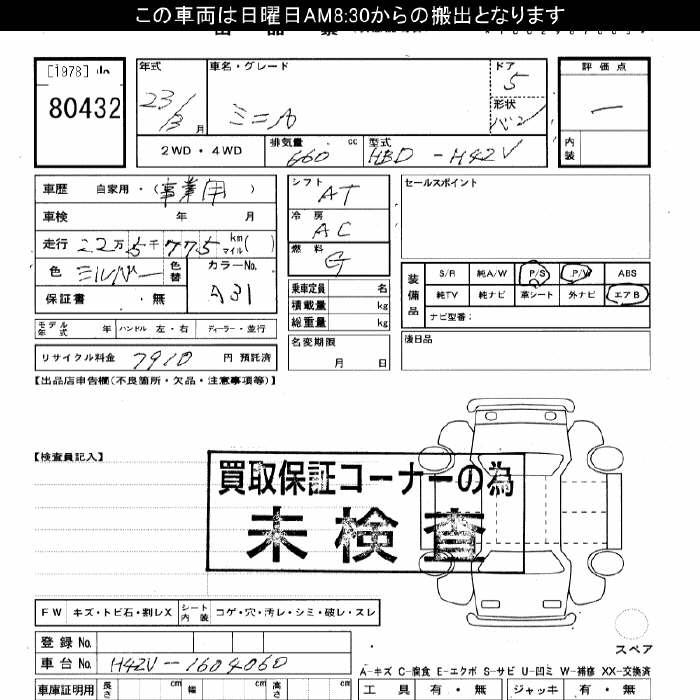 この車両は日曜日AM8:30からの搬出となります
[1978]
80432
年式 23/3 月
車名・グレード ミニカ
ドア 5
形状 バン
評価点 —
内装
2WD・4WD
排気量 660 cc
型式 HBD-H42V
車歴 自家用・(事業用)
車検 年 月
走行 22万5千775 km マイル( )
色 シルバー 色替
カラーNo. A31
保証書 ・無
シフト AT
冷房 AC
燃料 G
乗車定員 名
積載量 kg
総重量 kg
名変期限 月 日
セールスポイント
装備品
S/R 純A/W P/S P/W ABS
純TV 純ナビ 革シート 外ナビ エアB
ナビ型番:
後日品
モデル年式 年 ハンドル 左・右 ディーラー・並行
リサイクル料金 7910 円 預託済
【出品店申告欄(不良箇所・欠品・注意事項等)】
【検査員記入】
買取保証コーナーの為
未検査
FW キズ・トビ石・割レX シート内装 コゲ・穴・汚レ・シミ・破レ・スレ
登録No.
車台No. H42V-1604060
スペア
A-キズ C-腐食 E-エクボ S-サビ U-凹ミ W-補修 XX-交換済
車庫証明用 長さ cm 幅 cm 高さ cm
工具 有・無 ジャッキ 有・無